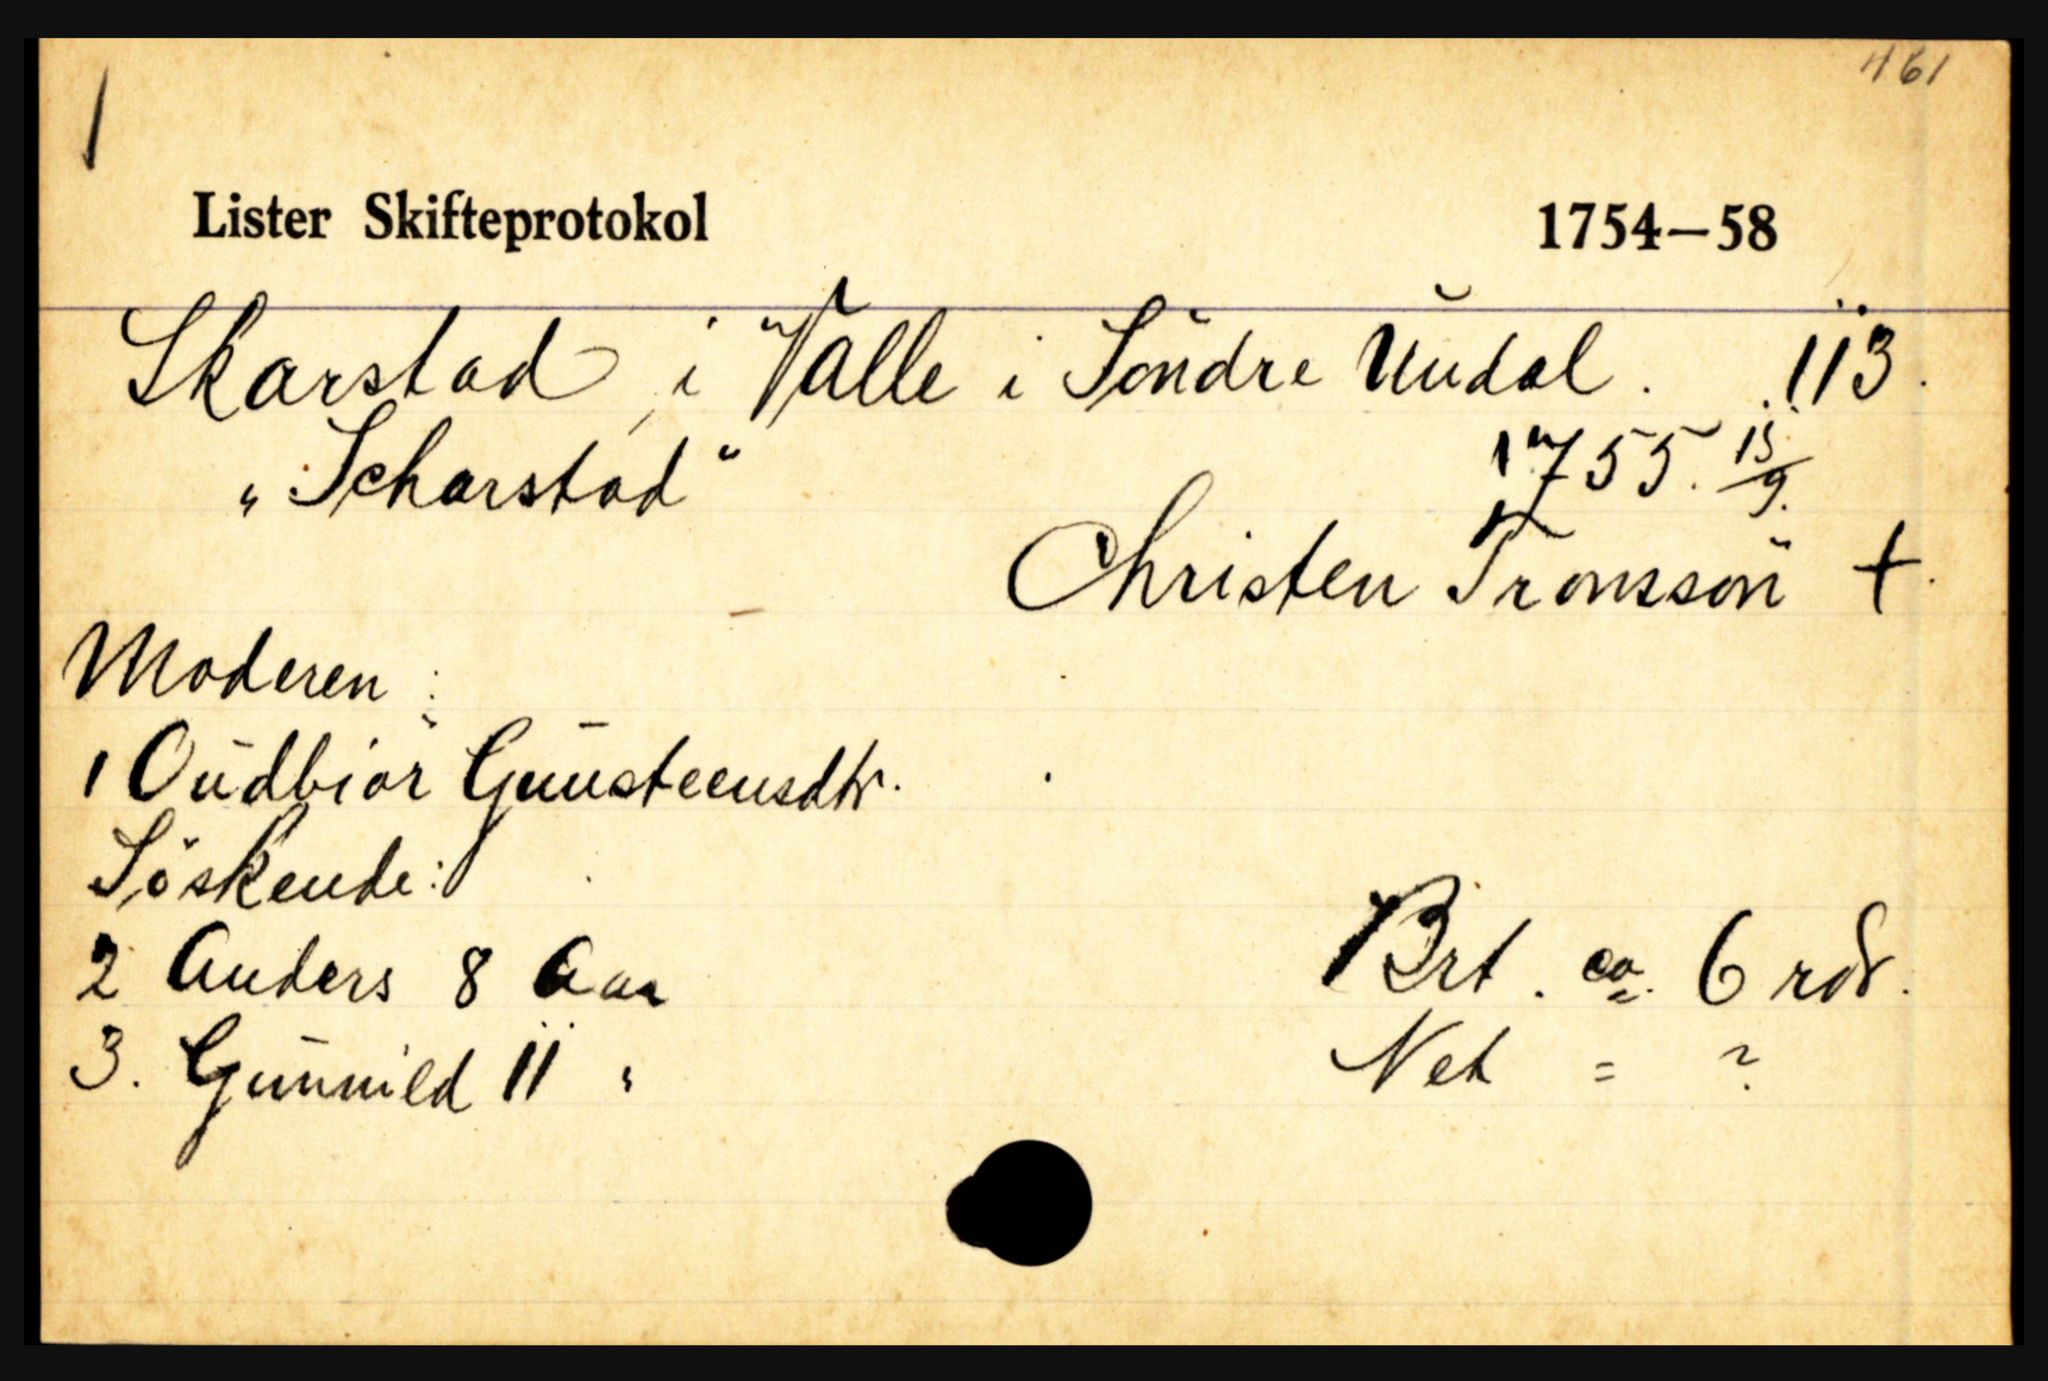 461
Lister Skifteprotokol 1754—58
Skarstad i Valle i Söndre Undal. 113.
"Scharstad" 1755. 15/9.
Christen Tronssön +.
Moderen:
1 Oudbiör Gunsteensdtr.
Söskende:
2 Anders 8 Aar Brt. ca. 6 rdr.
3. Gunnild 11 " Net = ?